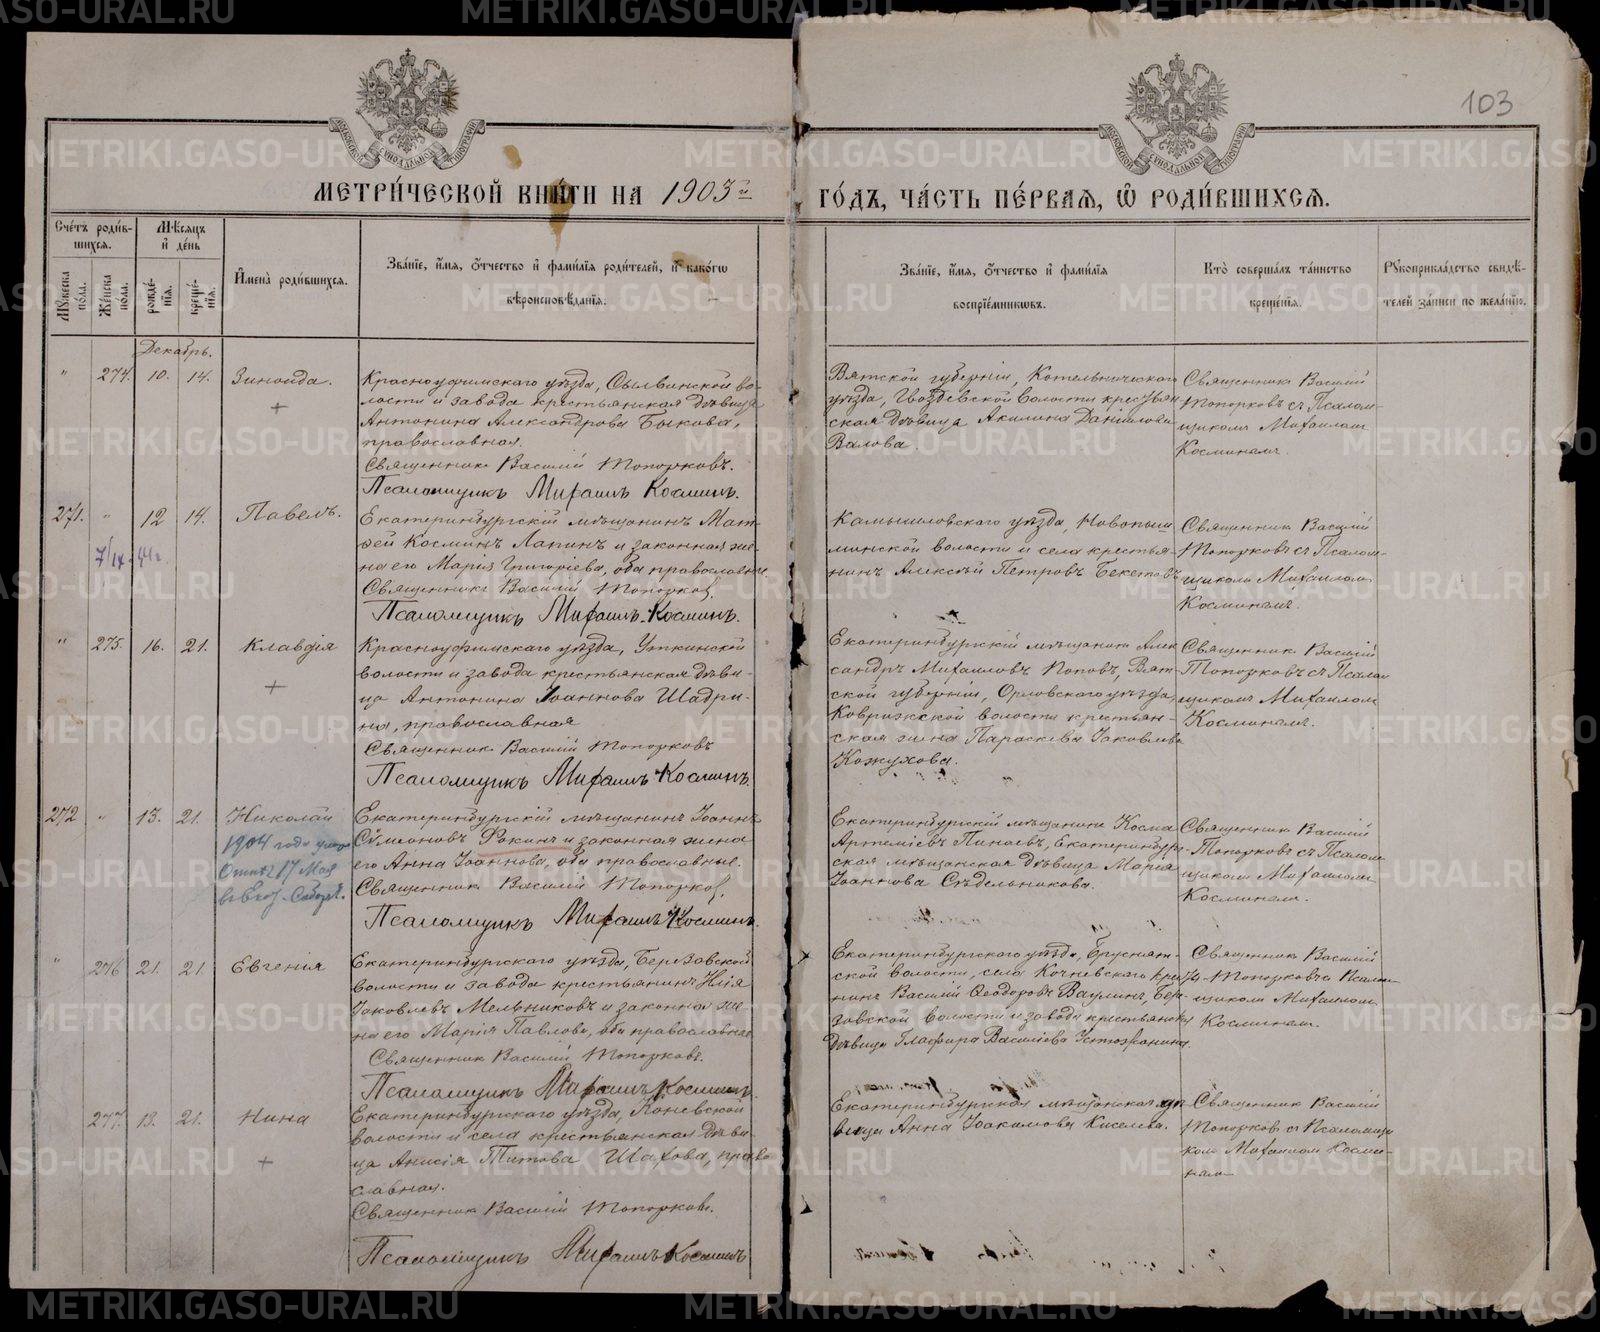 103
МЕТРИ́ЧЕСКОЙ КНИ́ГИ НА 1903й ГО́ДЪ, ЧА́СТЬ ПЕ́РВАѦ, Ѽ РОДИ́ВШИХСѦ.
Сче́тъ роди́в-
шихся.
Мѣ́сяцъ
и де́нь
Му́жеска
по́ла.
Же́нска
по́ла.
рожде́-
нїя.
креще́-
нїя.
Имена̀ роди́вшихся.
Зва́нїе, и́мя, о́тчество и фами́лїя роди́телей, и како́гѡ
вѣроисповѣ́данїя.
Зва́нїе, и́мя, о́тчество и фами́лїя
воспрїе́мниковъ.
Кто̀ соверша́лъ та́инство
креще́нїя.
Рукоприкла́дство свидѣ́-
телей за́писи по жела́нїю.
Декабрь.
" 274. 10. 14. Зинаида.
Красноуфимскаго уѣзда, Сылвинской во-
лости и завода крестьянская дѣвица
Антонина Александрова Быкова,
православная.
Священникъ Василій Топорковъ.
Псаломщикъ Михаилъ Косминъ.
Вятской губерніи, Котельническаго
уѣзда, Гвоздевской волости крестьян
ская дѣвица Акилина Данілова
Валова.
Священникъ Василій
Топорковъ съ Псалом-
щикомъ Михаиломъ
Косминымъ.
271. " 12 14. Павелъ.
7/IX-44г.
Екатеринбургскій мѣщанинъ Мат-
ѳей Косминъ Лапинъ и законная же-
на его Марія Григоріева, оба православные
Священникъ Василій Топорков
Псаломщикъ Михаилъ Косминъ.
Камышловскаго уѣзда, Новопыш
минской волости и села крестья-
нинъ Алексѣй Петровъ Бекетовъ
Священникъ Василій
Топорковъ съ Псалом-
щикомъ Михаиломъ
Косминымъ.
" 275. 16. 21. Клавдія
Красноуфимскаго уѣзда, Уткинской
волости и завода крестьянская дѣви-
ца Антонина Іоаннова Шадри-
на, православная
Священникъ Василій Топорковъ
Псаломщикъ Михаилъ Косминъ.
Екатеринбургскій мѣщанинъ Алек
сандръ Михаиловъ Поповъ, Вят-
ской губерніи, Орловскаго уѣзда,
Коврижской волости крестьян-
ская жена Параскева Іаковлева
Кожухова.
Священникъ Василій
Топорковъ съ Псалом
щикомъ Михаиломъ
Косминымъ.
272 " 13. 21. Николай
1904 года
17 Мая
Екатеринбургскій мѣщанинъ Іоаннъ
Сѵмеоновъ Фокинъ и законная жена
его Анна Іоаннова, оба православные.
Священникъ Василій Топорков
Псаломщикъ Михаилъ Косминъ.
Екатеринбургскій мѣщанинъ Косма
Артеміевъ Пинаевъ, Екатеринбург-
ская мѣщанская дѣвица Марія
Іоаннова Сѣдельникова.
Священникъ Василій
Топорковъ съ Псалом
щикомъ Михаиломъ
Косминымъ.
" 276 21. 21. Евгенія
Екатеринбургскаго уѣзда, Березовской
волости и завода крестьянинъ Илія
Іаковлевъ Мельниковъ и законная же-
на его Марія Павлова, оба православные
Священникъ Василій Топорковъ.
Псаломщикъ Михаилъ Косминъ.
Екатеринбургскаго уѣзда, Бруснят-
ской волости, села Кочневскаго крестья
нинъ Василій Ѳеодоровъ Ваулинъ, Бере-
зовской волости и завода крестьянская
дѣвица Глафира Василіева
Священникъ Василій
Топорковъ съ Псалом
щикомъ Михаиломъ
Косминымъ.
277. 13. 21. Нина
Екатеринбургскаго уѣзда, Коневской
волости и села крестьянская дѣви-
ца Анисія Титова Шахова, право
славная.
Священникъ Василій Топорковъ.
Псаломщикъ Михаилъ Косминъ
Екатеринбургская мѣщанская дѣ-
вица Анна Іоакимова Киселева.
Священникъ Василій
Топорковъ съ Псаломщи
комъ Михаиломъ Косми-
нымъ
METRIKI.GASO-URAL.RU